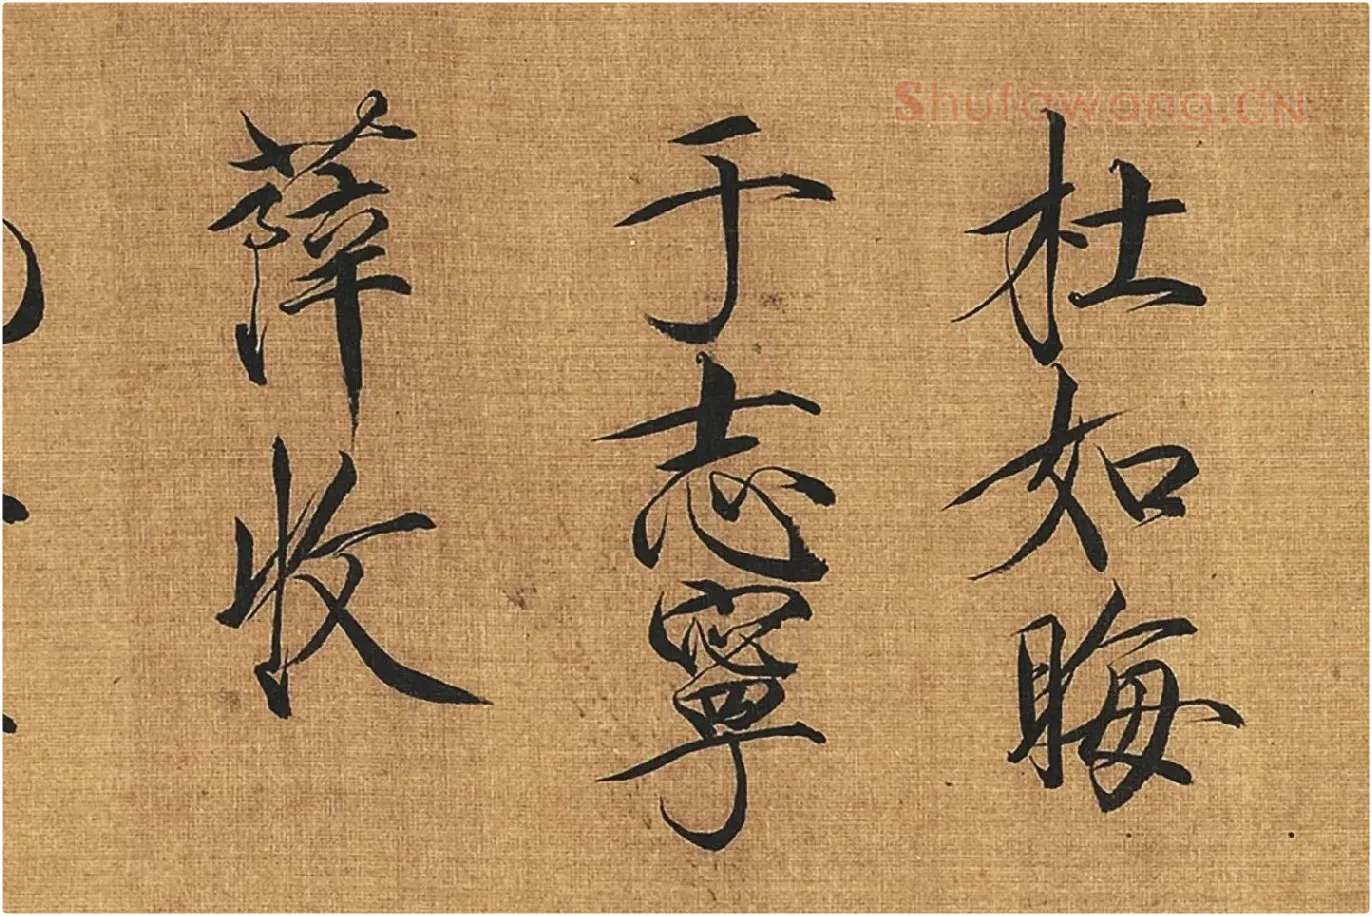 Shufawang.CN
杜如晦
于志寧
薛收